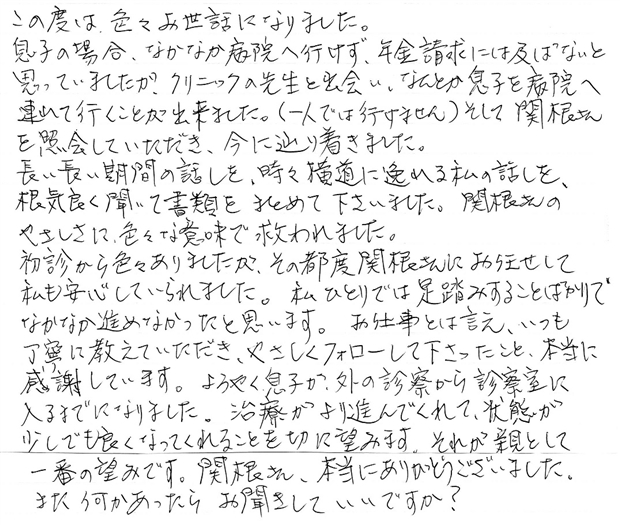 この度は、色々お世話になりました。
息子の場合、なかなか病院へ行けず、年金請求には及ばないと
思っていましたが、クリニックの先生と出会い、なんとか息子を病院へ
連れて行くことが出来ました。(一人では行けません)そして関根さん
を照会していただき、今に辿り着きました。
長い長い期間の話しを、時々横道に逸れる私の話しを、
根気良く聞いて書類をまとめて下さいました。関根さんの
やさしさに、色々な意味で救われました。
初診から色々ありましたが、その都度関根さんにお任せして
私も安心していられました。私ひとりでは足踏みすることばかりで
なかなか進めなかったと思います。お仕事とは言え、いつも
丁寧に教えていただき、やさしくフォローして下さったこと、本当に
感謝しています。ようやく息子が、外の診察から診察室に
入るまでになりました。治療がより進んでくれて、状態が
少しでも良くなってくれることを切に望みます。それが親として
一番の望みです。関根さん、本当にありがとうございました。
また何かあったらお聞きしていいですか?